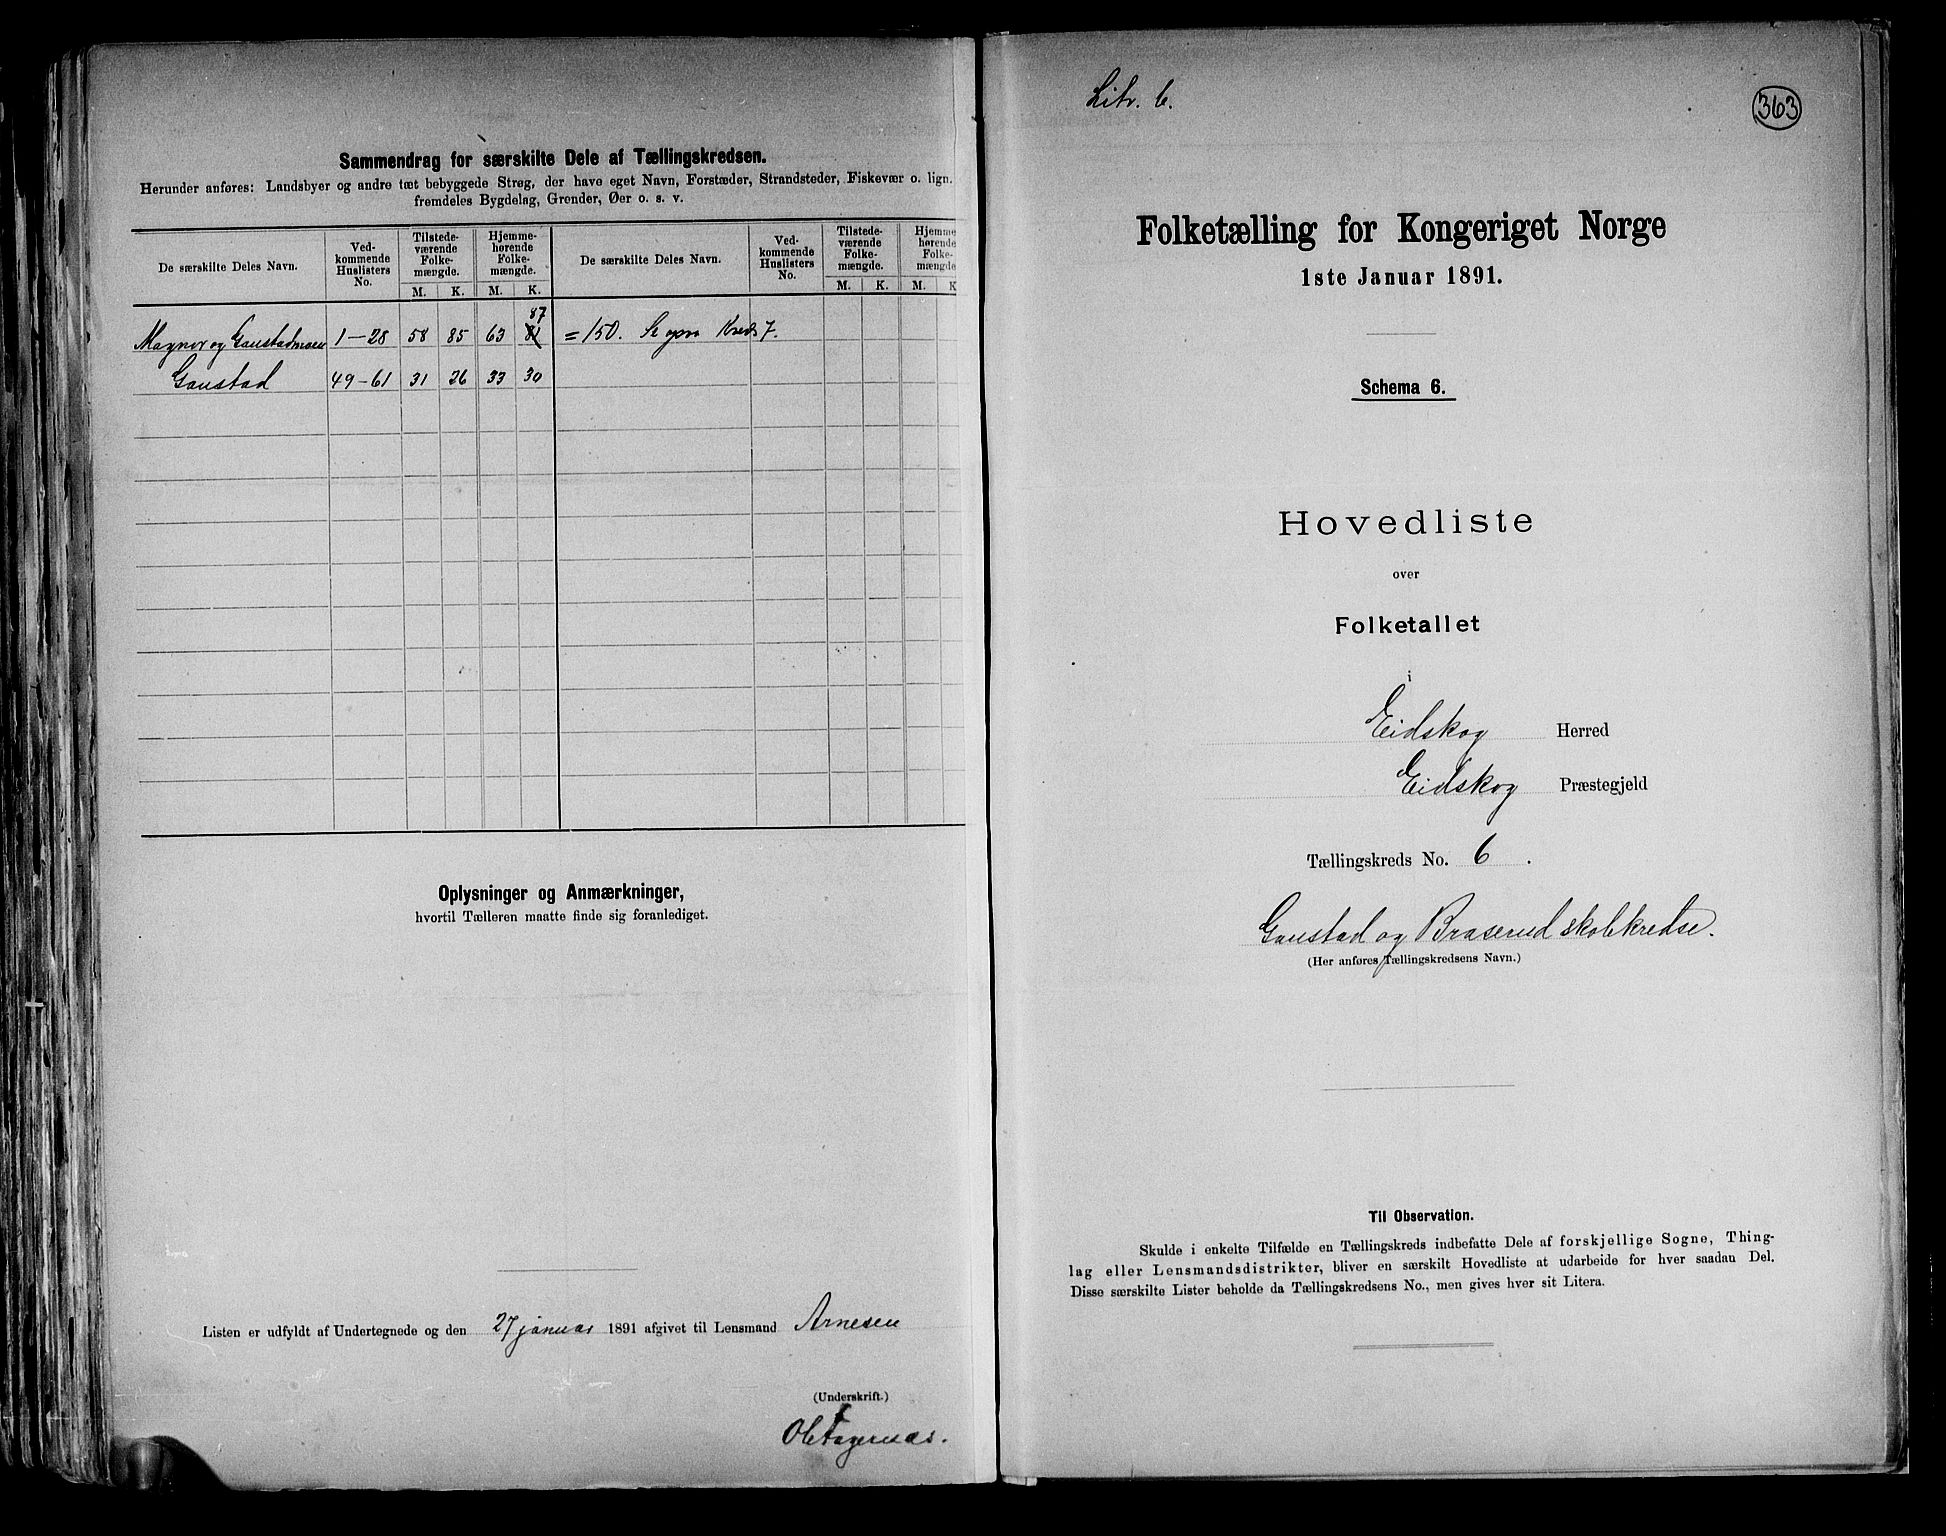 Sammendrag for særskilte Dele af Tællingskredsen.
Herunder anføres: Landsbyer og andre tæt bebyggede Strøg, der have eget Navn, Forstæder, Strandsteder, Fiskevær o. lign.
fremdeles Bygdelag, Grender, Øer o. s. v.
De særskilte Deles Navn.
Ved-
kommende
Huslisters
No.
Tilstede-
værende
Folke-
mængde.
Hjemme-
hørende
Folke-
mængde.
De særskilte Deles Navn.
Ved-
kommende
Huslisters
No.
Tilstede-
værende
Folke-
mængde.
Hjemme
hørende
Folke-
mængde
M. K. M. K. M. K. M. K
87
Magnor og Gaustadmoen 1-28 58 85 63 81 =150. Se ogsaa Kreds 7.
Gaustad 49-61 31 26 33 30
Oplysninger og Anmærkninger,
hvortil Tælleren maatte finde sig foranlediget.
Listen er udfyldt af Undertegnede og den 27 januar 1891 afgivet til Lensmand Arnesen
(Underskrift.)
Litr. 6.
363
Folketælling for Kongeriget Norge
1ste Januar 1891.
Schema 6.
Hovedliste
over
Folketallet
i
Eidskog Herred
Eidskog Præstegjeld
Tællingskreds No. 6.
Gaustad og Braserud skolekredse.
(Her anføres Tællingskredsens Navn.)
Til Observation.
Skulde i enkelte Tilfælde en Tællingskreds indbefatte Dele af forskjellige Sogne, Thing-
lag eller Lensmandsdistrikter, bliver en særskilt Hovedliste at udarbeide for hver saadan Del.
Disse særskilte Lister beholde da Tællingskredsens No., men gives hver sit Litera.